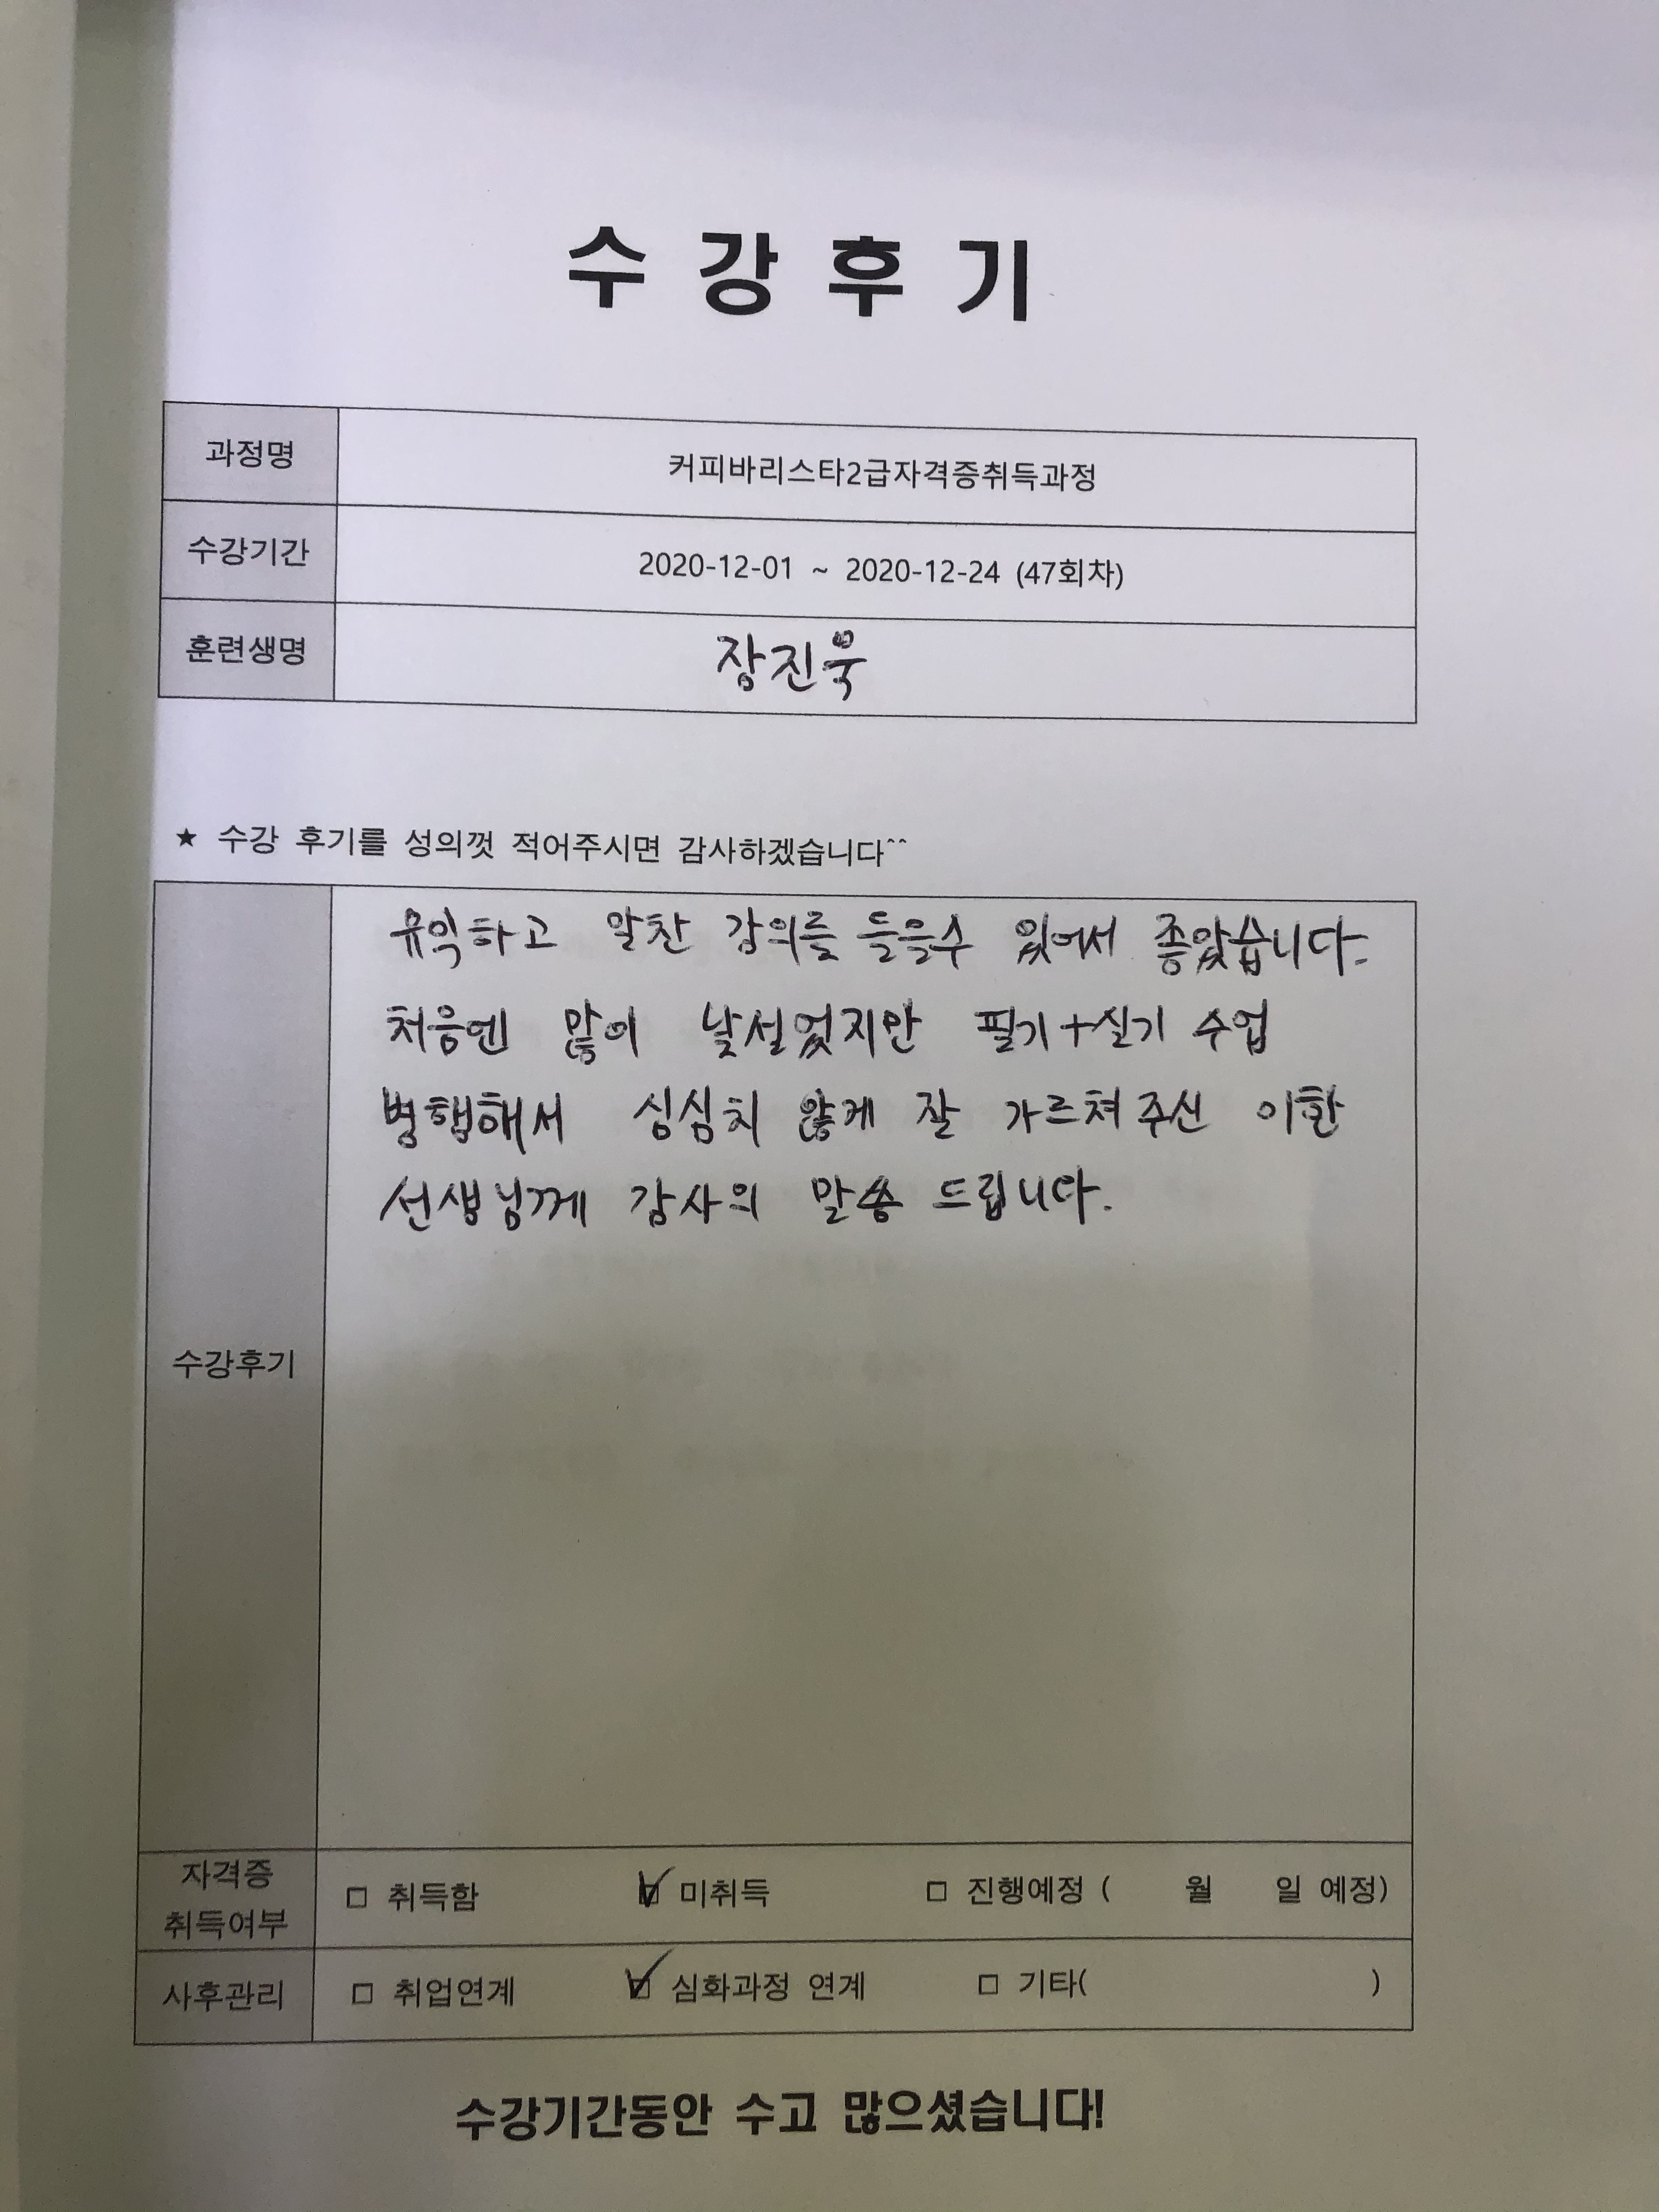 수강후기
과정명 커피바리스타2급자격증취득과정
수강기간 2020-12-01 ~ 2020-12-24 (47회차)
훈련생명 장진욱
★ 수강 후기를 성의껏 적어주시면 감사하겠습니다^^
유익하고 알찬 강의를 들을수 있어서 좋았습니다.
처음엔 많이 낯설었지만 필기+실기 수업
병행해서 심심치 않게 잘 가르쳐주신 이환
선생님께 감사의 말씀 드립니다.
수강후기
자격증
취득여부
□ 취득함 ☑ 미취득 □ 진행예정 ( 월 일 예정)
사후관리 □ 취업연계 ☑ 심화과정 연계 □ 기타( )
수강기간동안 수고 많으셨습니다!